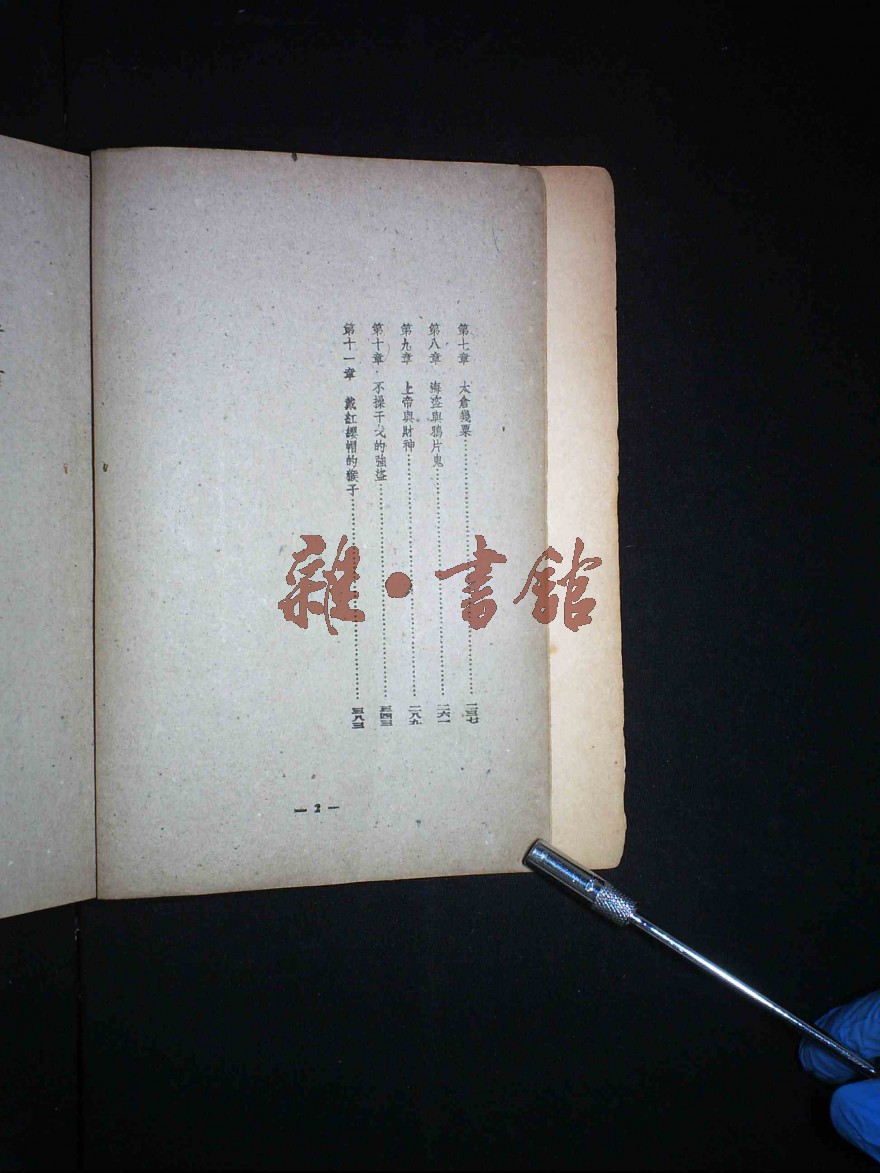 第七章 太倉幾粟 二三七
第八章 海盜與鴉片鬼 二六一
第九章 上帝與財神 二八九
第十章 不操干戈的強盜 三四三
第十一章 戴紅纓帽的猴子 三八三
— 2 —
雜·書館